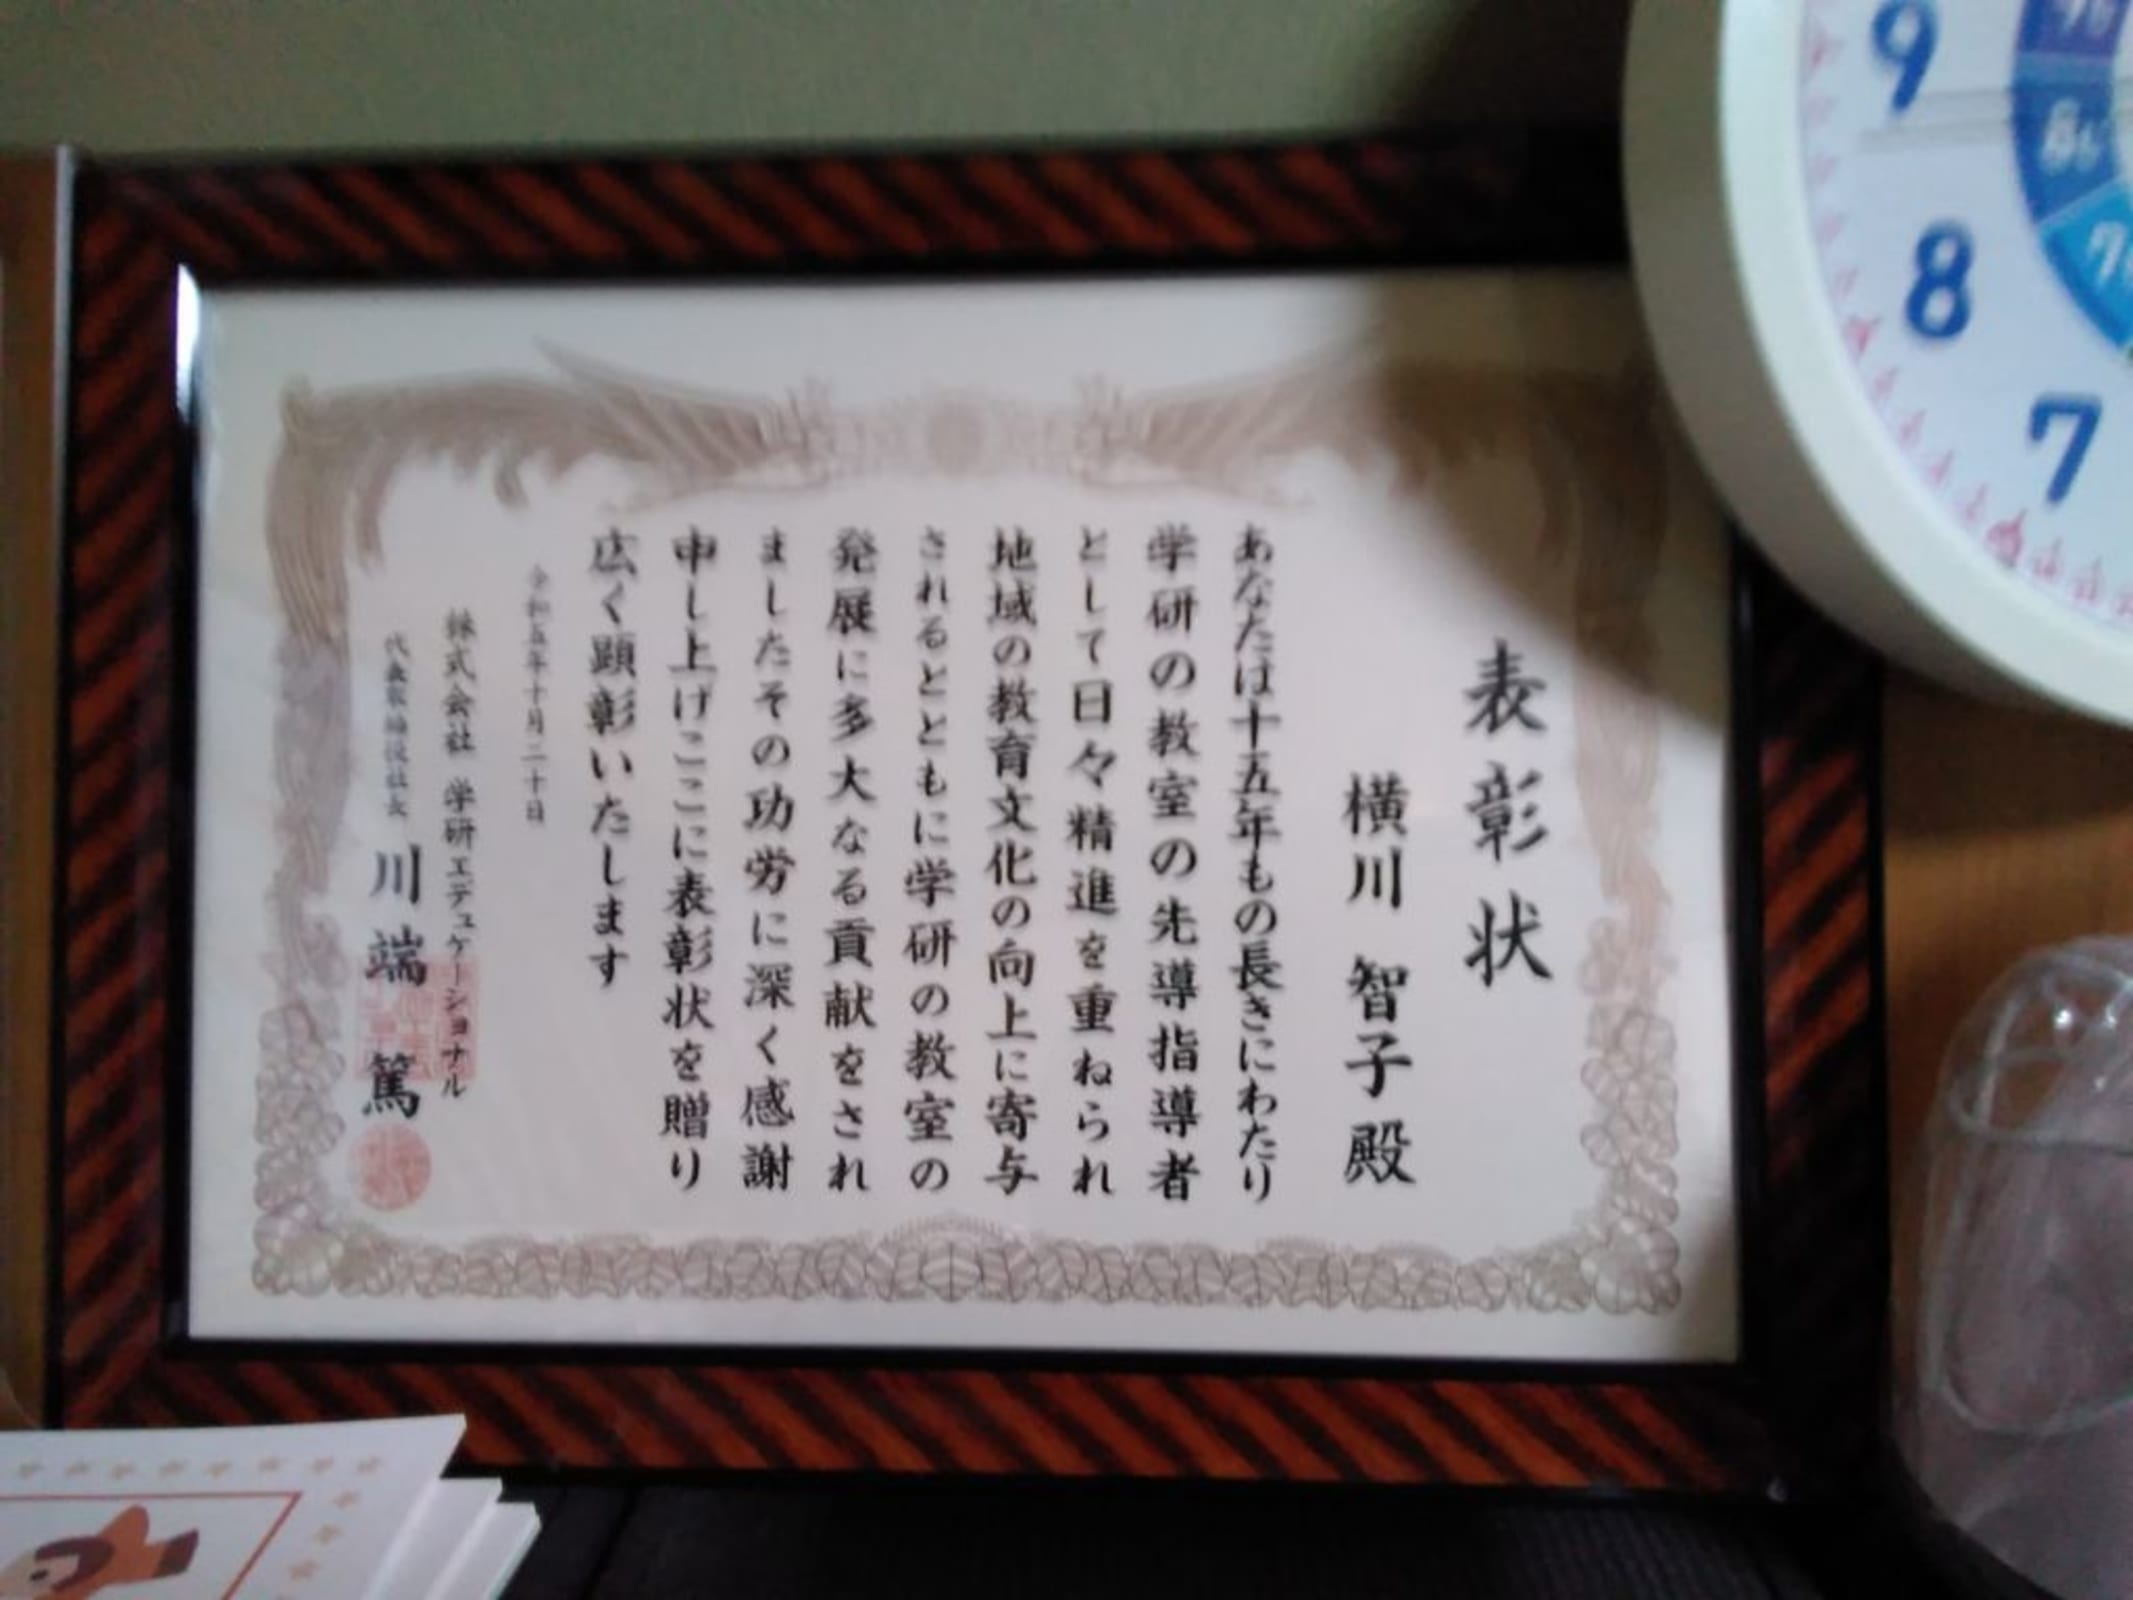 表彰状
横川 智子 殿
あなたは十五年もの長きにわたり
学研の教室の先導指導者
として日々精進を重ねられ
地域の教育文化の向上に寄与
されるとともに学研の教室の
発展に多大なる貢献をされ
ましたその功労に深く感謝
申し上げここに表彰状を贈り
広く顕彰いたします
令和五年十月二十日
株式会社 学研エデュケーショナル
代表取締役社長 川端 篤
9
8
7